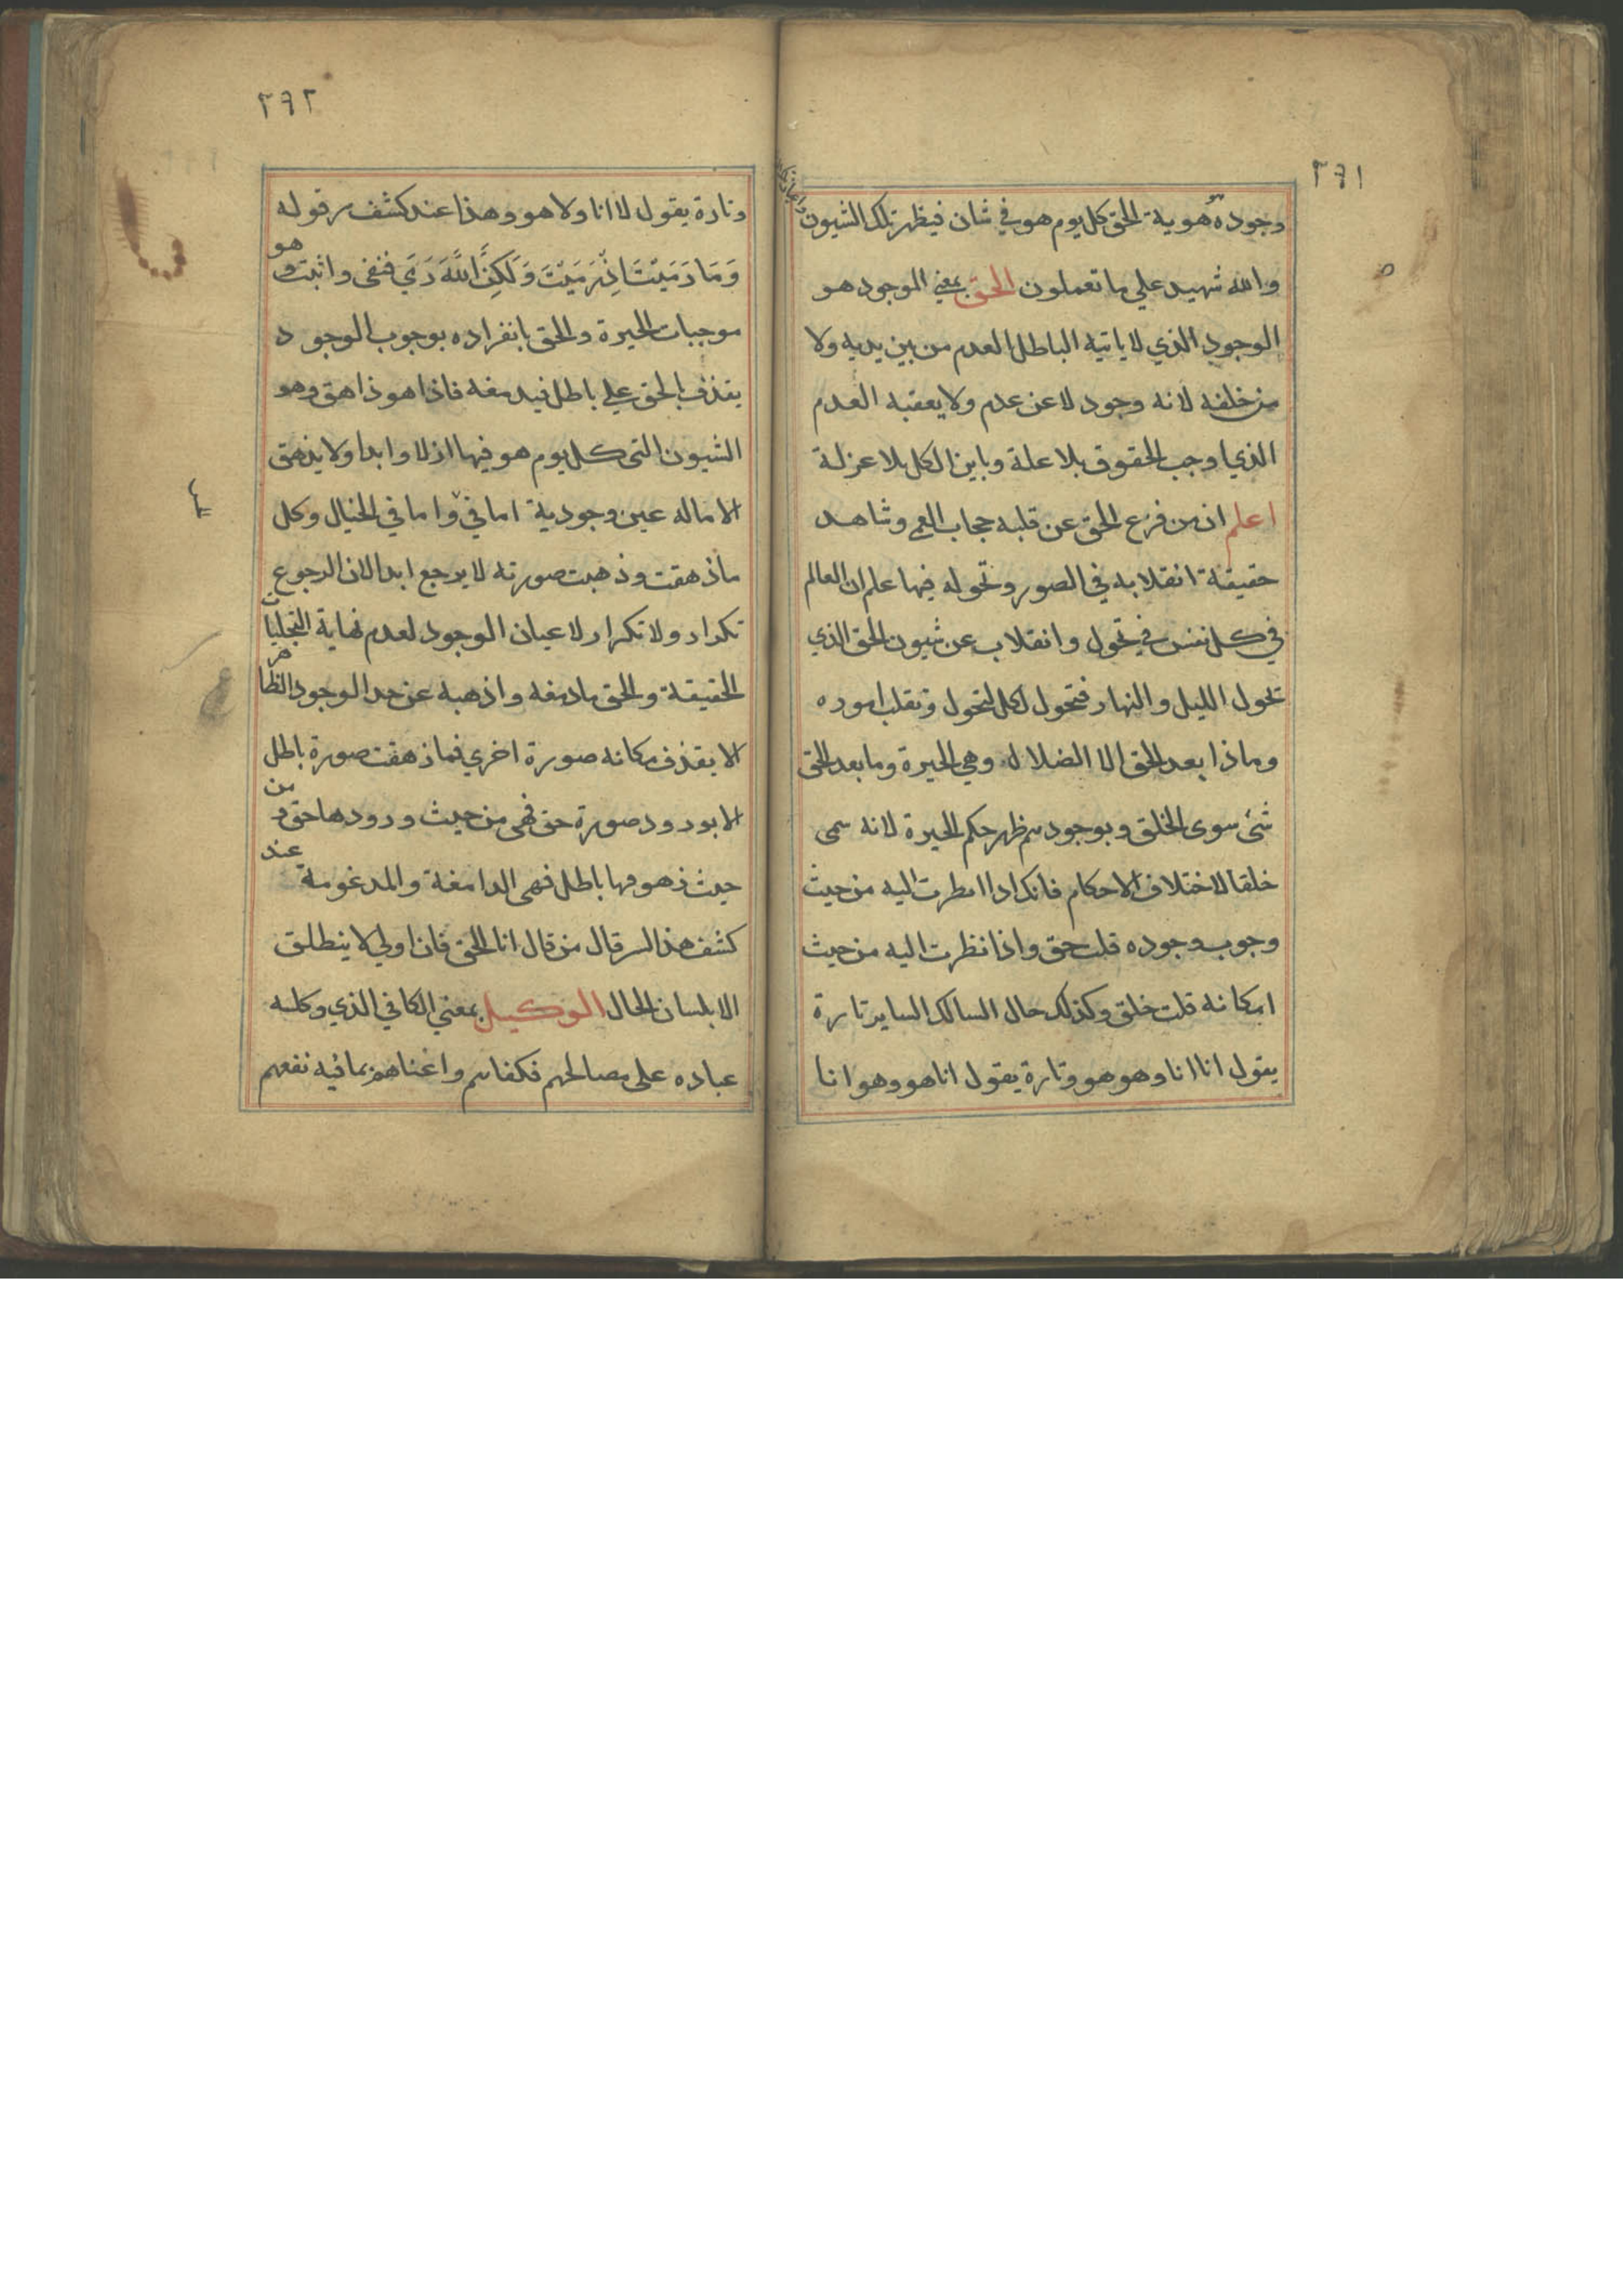 ٢٩١
وجوده هوية الحق كل يوم هو في شان فيظهر تلك الشيون
والله شهيد علي ما تعملون الحق بمعني الموجود هو
الوجود الذي لا ياتيه الباطل العدم من بين يديه ولا
من خلفه لانه وجود لا عن عدم ولا يعقبه العدم
الذي اوجب الحقوق بلا علة وباين الكل بلا عزلة
اعلم ان من فزع الحق عن قلبه حجاب العمي وشاهد
حقيقة انقلابه في الصور وتحوله فيها علم ان العالم
في كل نفس في تحول وانقلاب عن شيون الحق الذي
تحول الليل والنهار فتحول لكل لتحول وتقلب اموره
وماذا بعد الحق الا الضلال وهي الحيرة وما بعد الحق
شئ سوى الخلق وبوجودهم ظهر حكم الحيرة لانه سمى
خلقا لاختلاف الاحكام فانك اذا نظرت اليه من حيث
وجوب وجوده قلت حق واذا نظرت اليه من حيث
امكانه قلت خلق وكذلك حال السالك الساير تارة
يقول انا انا وهو هو وتارة يقول انا هو وهو انا
٢٩٢
وتارة يقول لا انا ولا هو وهذا عند كشف سر قوله
وَمَا رَمَيْتَ اِذْ رَمَيْتَ وَلَكِنَّ اللَّهَ رَمَي فنفى واثبت وهو
موجبات الحيرة والحق بانفراده بوجوب الوجود
يقذف بالحق علي باطل فيدمغه فاذا هو ذاهق وهو
الشيون التى كل يوم هو فيها ازلا وابدا ولا يذهق
الا ماله عين وجودية اما في واما في الخيال وكل
ما ذهقت وذهبت صورته لا يرجع ابدا لان الرجوع
تكرار ولا تكرار لاعيان الوجود لعدم نهاية التجليات
الحقيقة والحق ما دمغه واذهبه عن حد الوجود الظاهر
الا يقذف مكانه صورة اخري فما ذهقت صورة باطل
الا بورود صورة حق فهى من حيث ورودها حق ومن
حيث ذهوقها باطل فهى الدامغة والمدغومة عند
كشف هذا السر قال من قال انا الحق فان اولي لا ينطلق
الا بلسان الحال الوكيل بمعني الكافي الذي وكله
عباده على مصالحهم فكفاهم واغناهم بما فيه نفعهم